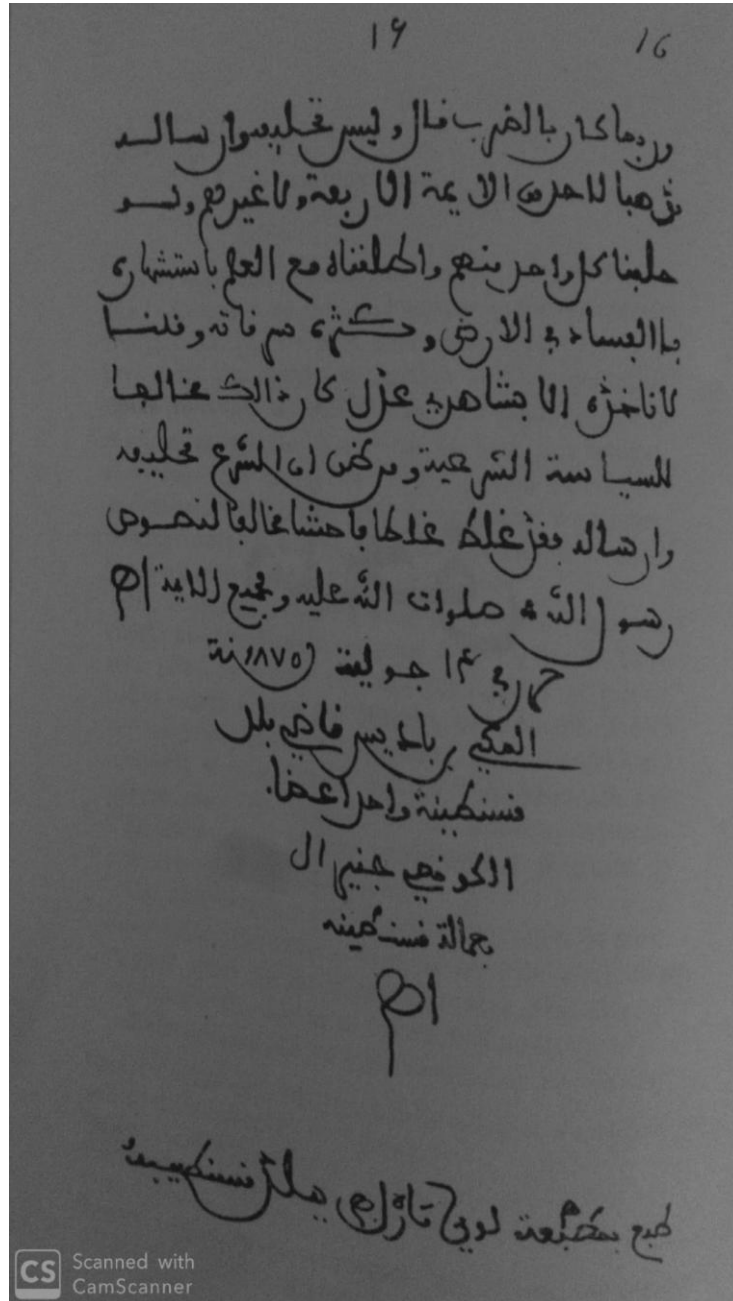 ١٦ 16
وربما كان بالضرب فال وليس تحليبه وارساله
مذهبا لاحد من الايمة الاربعة ولا غيرهم ولو
حلبنا كل واحد منهم واطلفناه مع العلم باشتهاره
بالبساد في الارض وكثرة سرفاته وفلنا
لا ناخذه الا بشاهدي عدل كان ذالك مخالبا
للسياسة الشرعية ومن ظن ان الشرع تحليبه
وارساله بفد غلط غلطا باحشا مخالبا لنصوص
رسول الله صلوات الله عليه وجميع الايمة اهـ
حرر في ١٤ جولية سنة ١٨٧٥
المكي بن باديس فاضي بلد
فسنطينة واحد اعضا
الكونصي جنيرال
بعمالة فسنطينه
اهـ
طبع بمطبعة لوي مارل في بلد فسنطينة
CS Scanned with
CamScanner